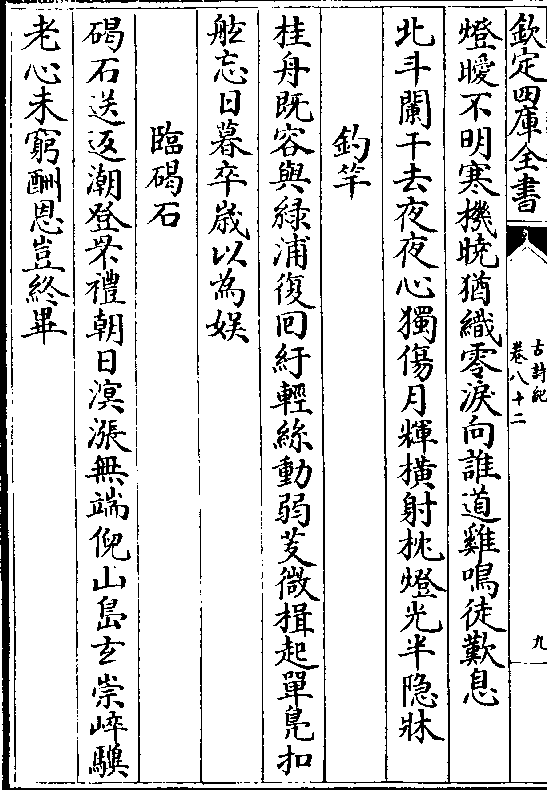 欽定四庫全書
古詩紀
卷八十二
九
燈曖不明寒機曉猶織零淚向誰道雞鳴徒歎息
北斗闌干去夜夜心獨傷月輝橫射枕燈光半隠牀
釣竿
桂舟既容與緑浦復回紆輕絲動弱芰微楫起單鳬扣
舷忘日暮卒歳以為娱
臨碣石
碣石送返潮登罘禮朝日溟漲無端倪山島玄崇崒驥
老心未窮酬恩豈終畢